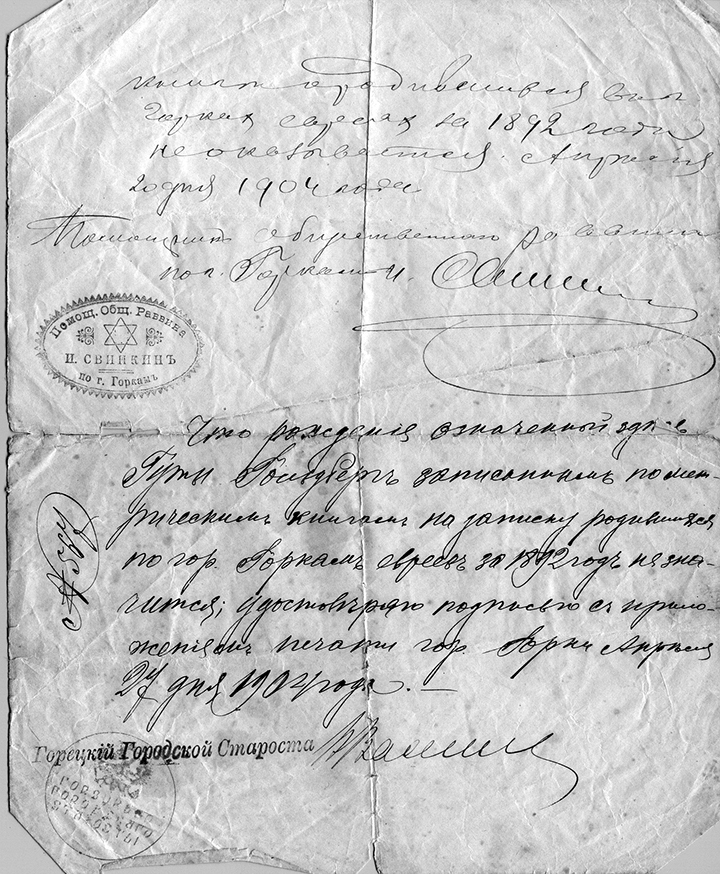 книгам о родившихся въ г.
Горках евреях за 1892 годъ
не оказывается. Апреля
20 дня 1904 года
Помощникъ общественнаго раввина
по г. Горкамъ И. Свинкинъ
Помощ. Общ. Раввина
И. СВИНКИНЪ
по г. Горкамъ
Что рождения означенный здесь
записаннымъ по мет-
рическимъ книгамъ на записку родившихся
по гор. Горкамъ евреевъ за 1892 годъ не зна-
чится; удостоверяю подписью съ прило-
жениемъ печати гор. Горки Апреля
27 дня 1904 года. —
№ 364
Горецкій Городской Староста
ГОРОДСКОГО
СТАРОСТЫ